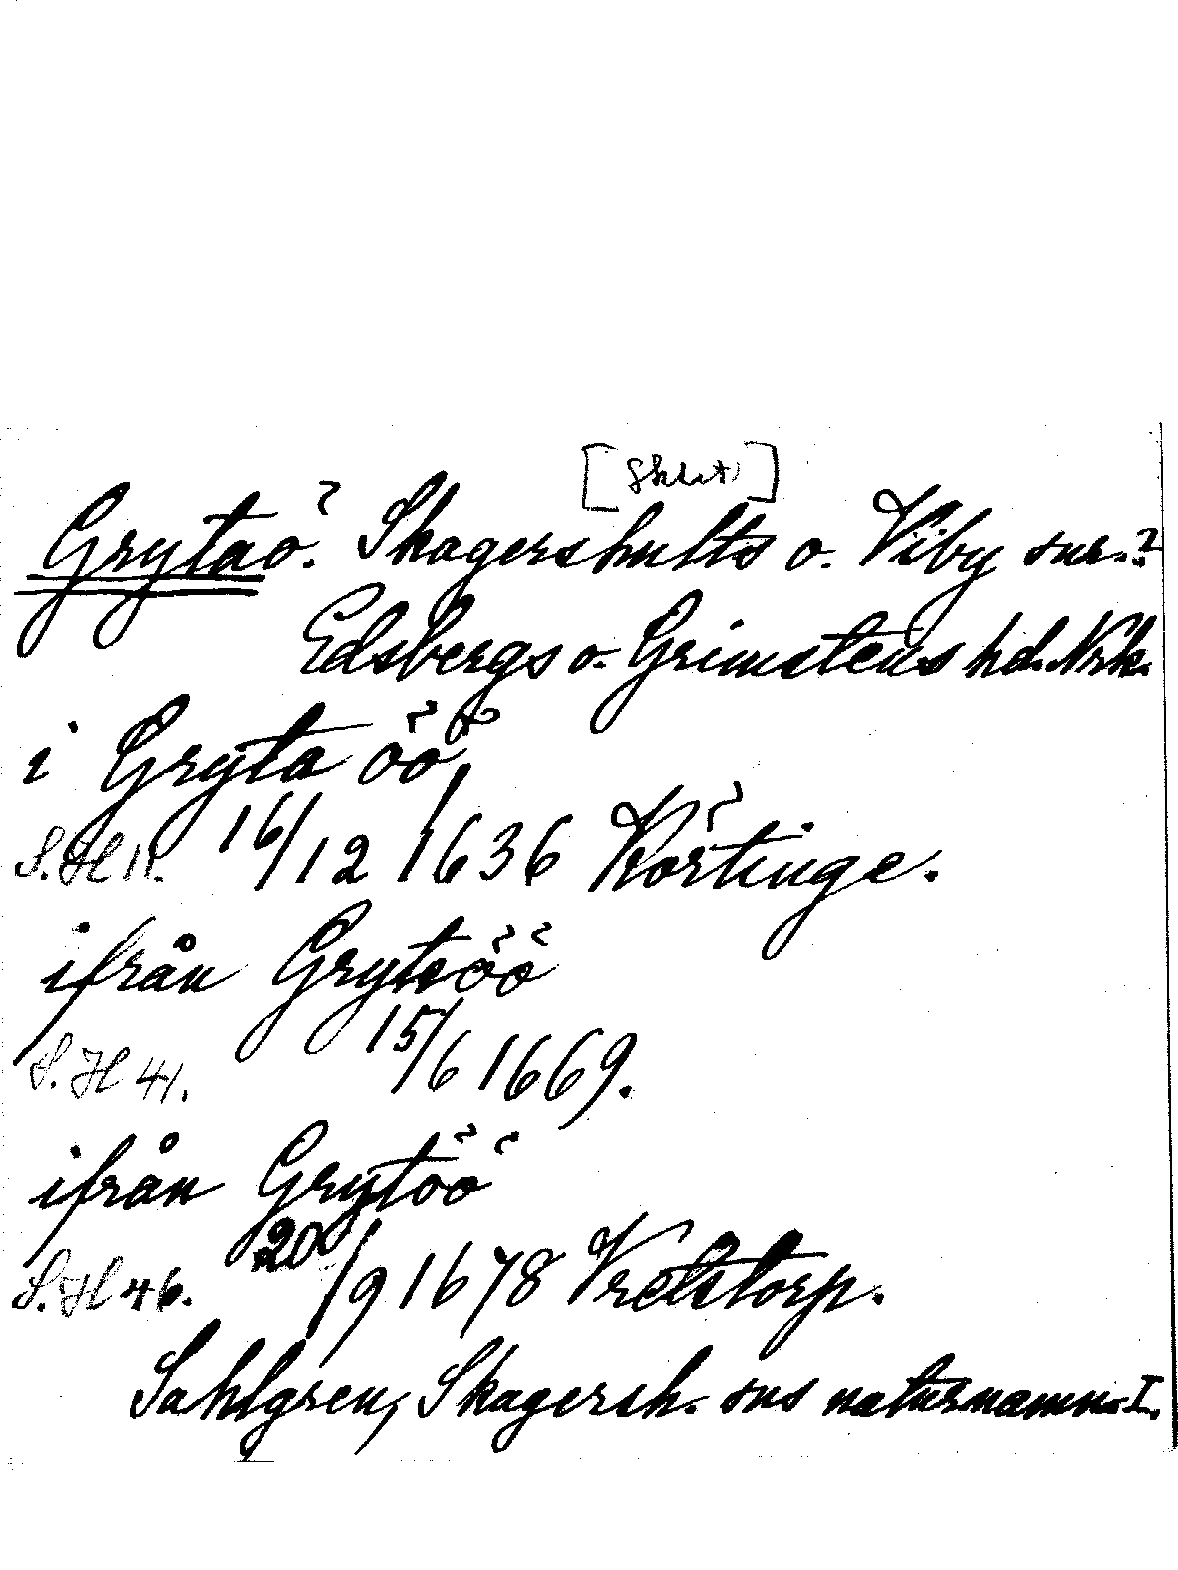 Grytaö. Skagershults o. Viby snr.?
Edsbergs o. Grimstens hd. Nrk.
i Gryta öö,
S.H 11. 16/12 1636 Körtinge.
ifrån Gryteöö
S.H 41. 15/6 1669.
ifrån Grytöö
S.H 46. 20/9 1678 Vretstorp.
Sahlgren, Skagersh. sns naturnamn. I.